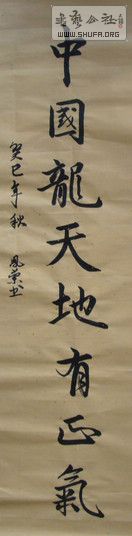 書藝公社
WWW.SHUFA.ORG
中國龍天地有正氣
癸巳年秋 鳳榮书